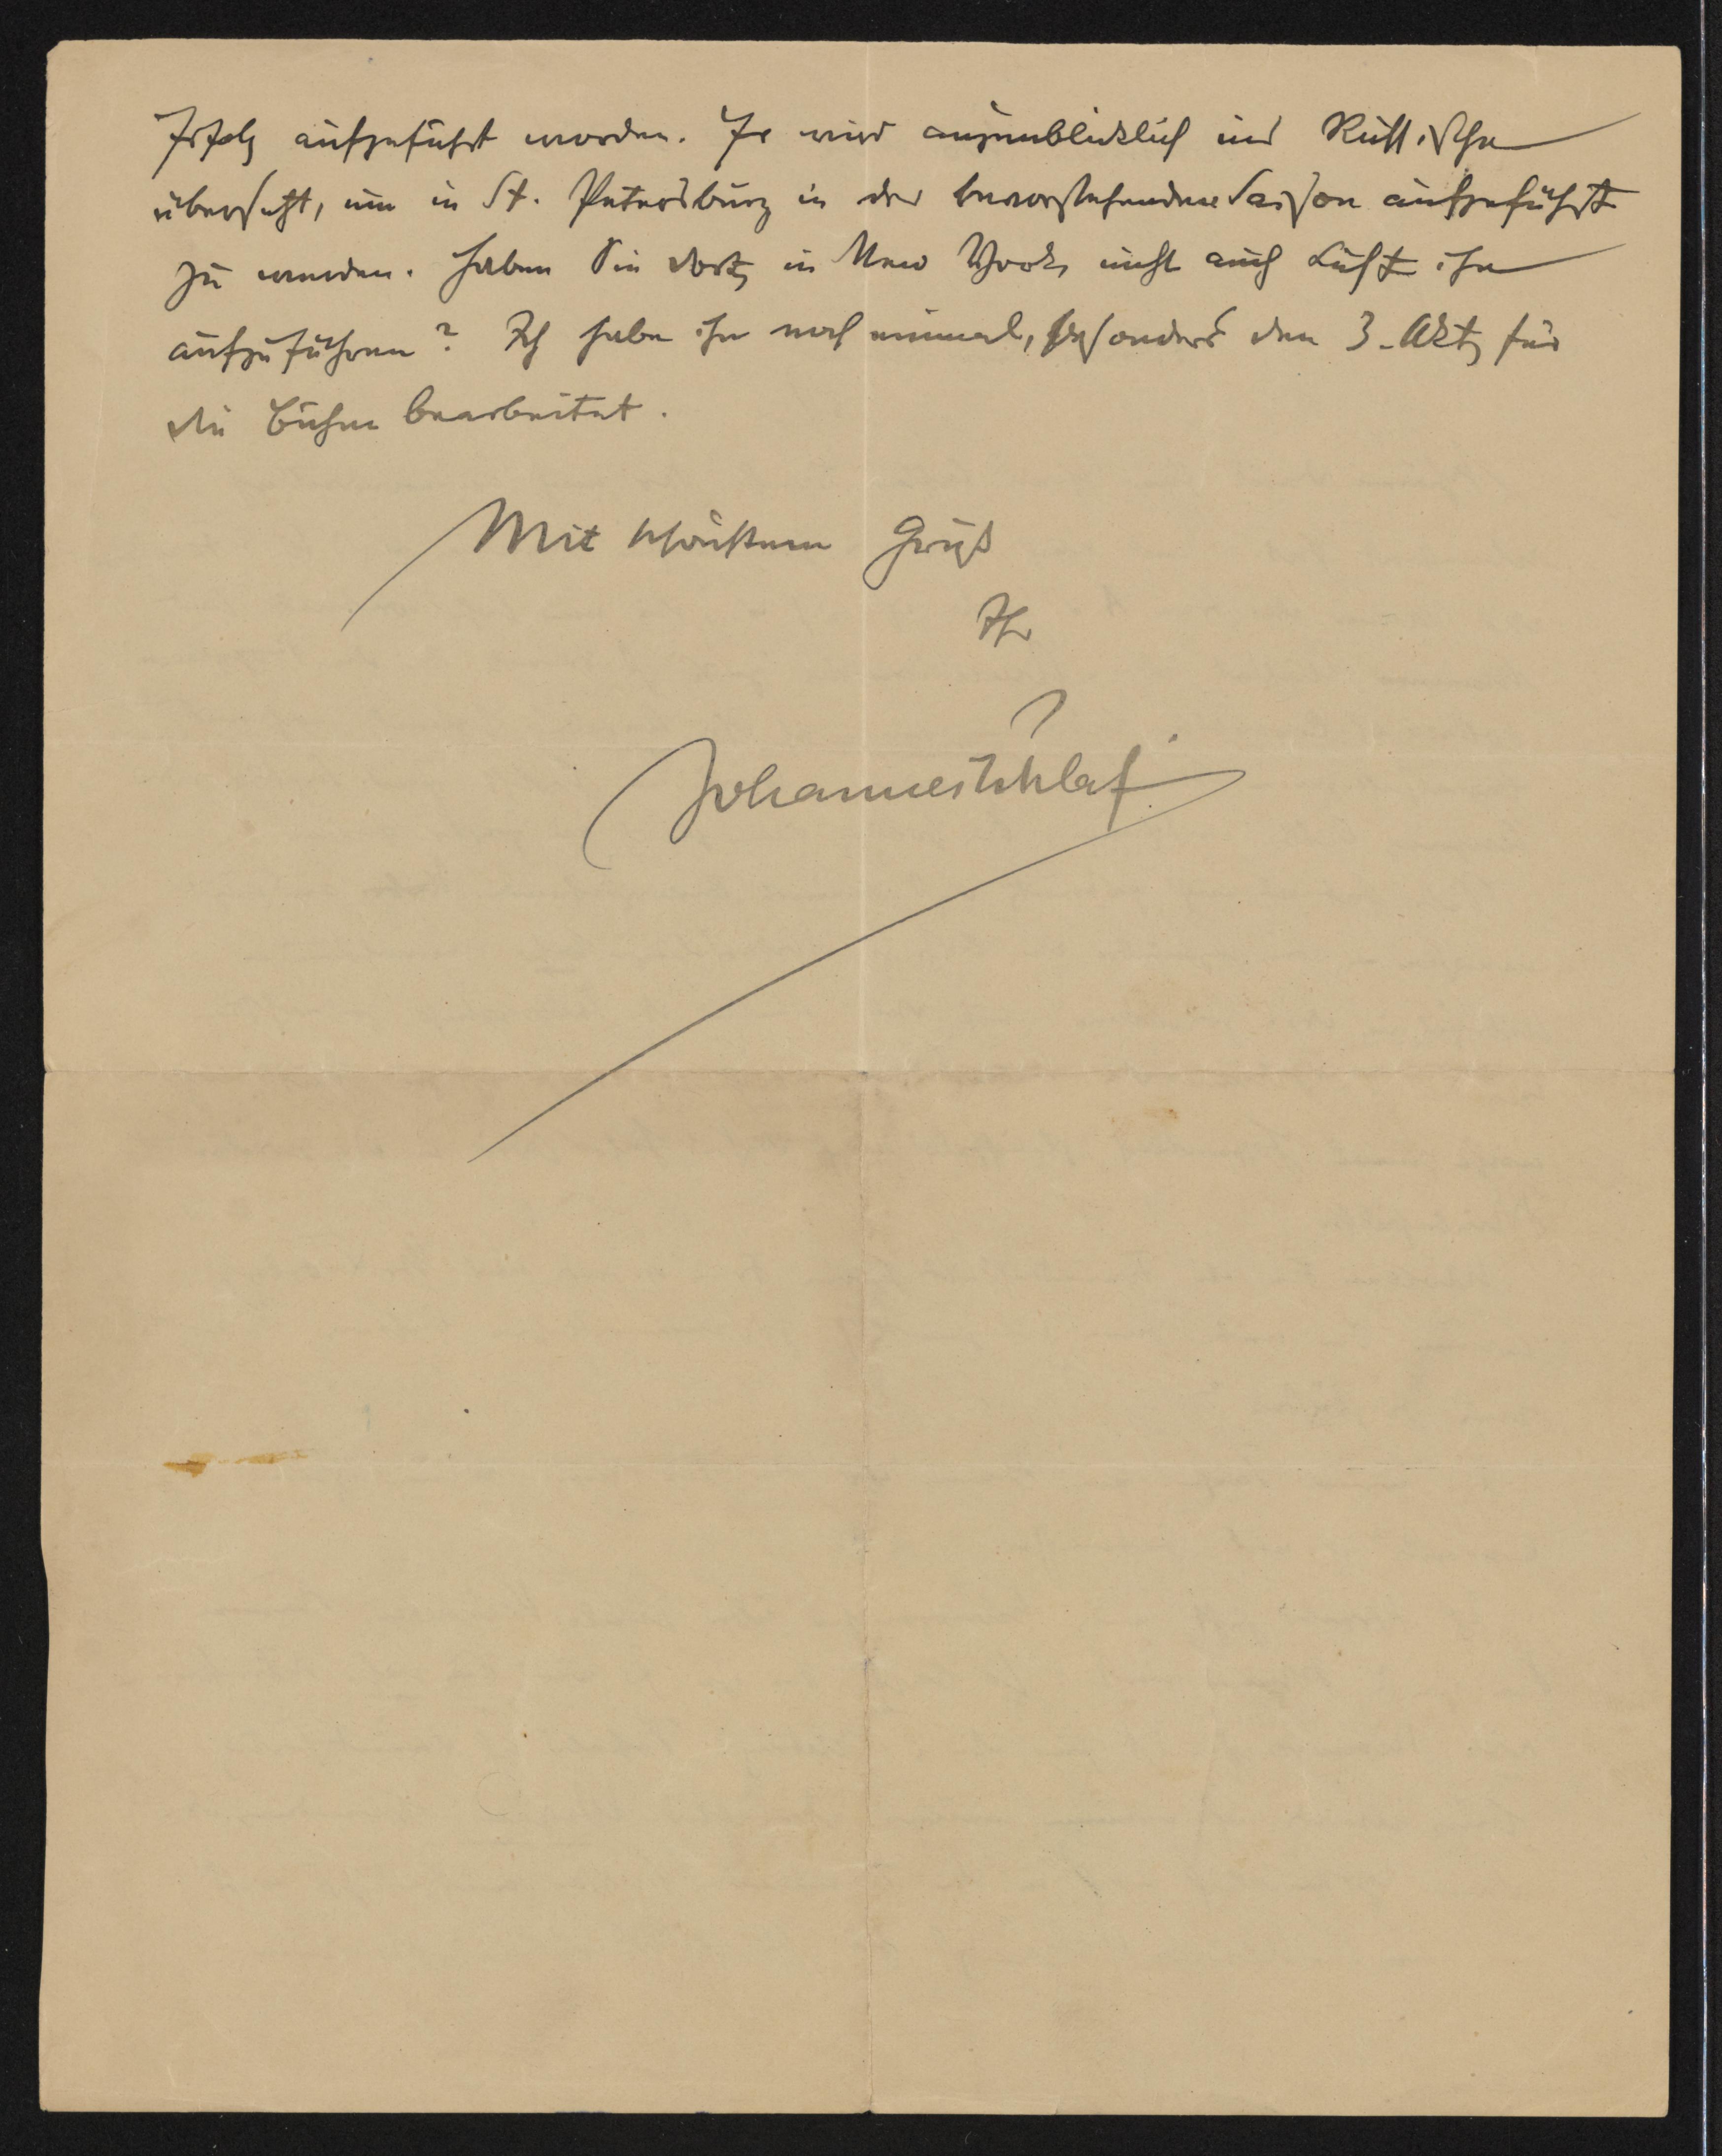 Erfolg aufgeführt worden. Er wird augenblicklich ins Russische
übersetzt, um in St. Petersburg in der bevorstehenden Saison aufgeführt
zu werden. Haben Sie dort, in New York, nicht auch Lust ihn
aufzuführen? Ich habe ihn noch einmal, besonders den 3. Akt, für
die Bühne bearbeitet.
Mit schönstem Gruß
Ihr
Johannes Schlaf